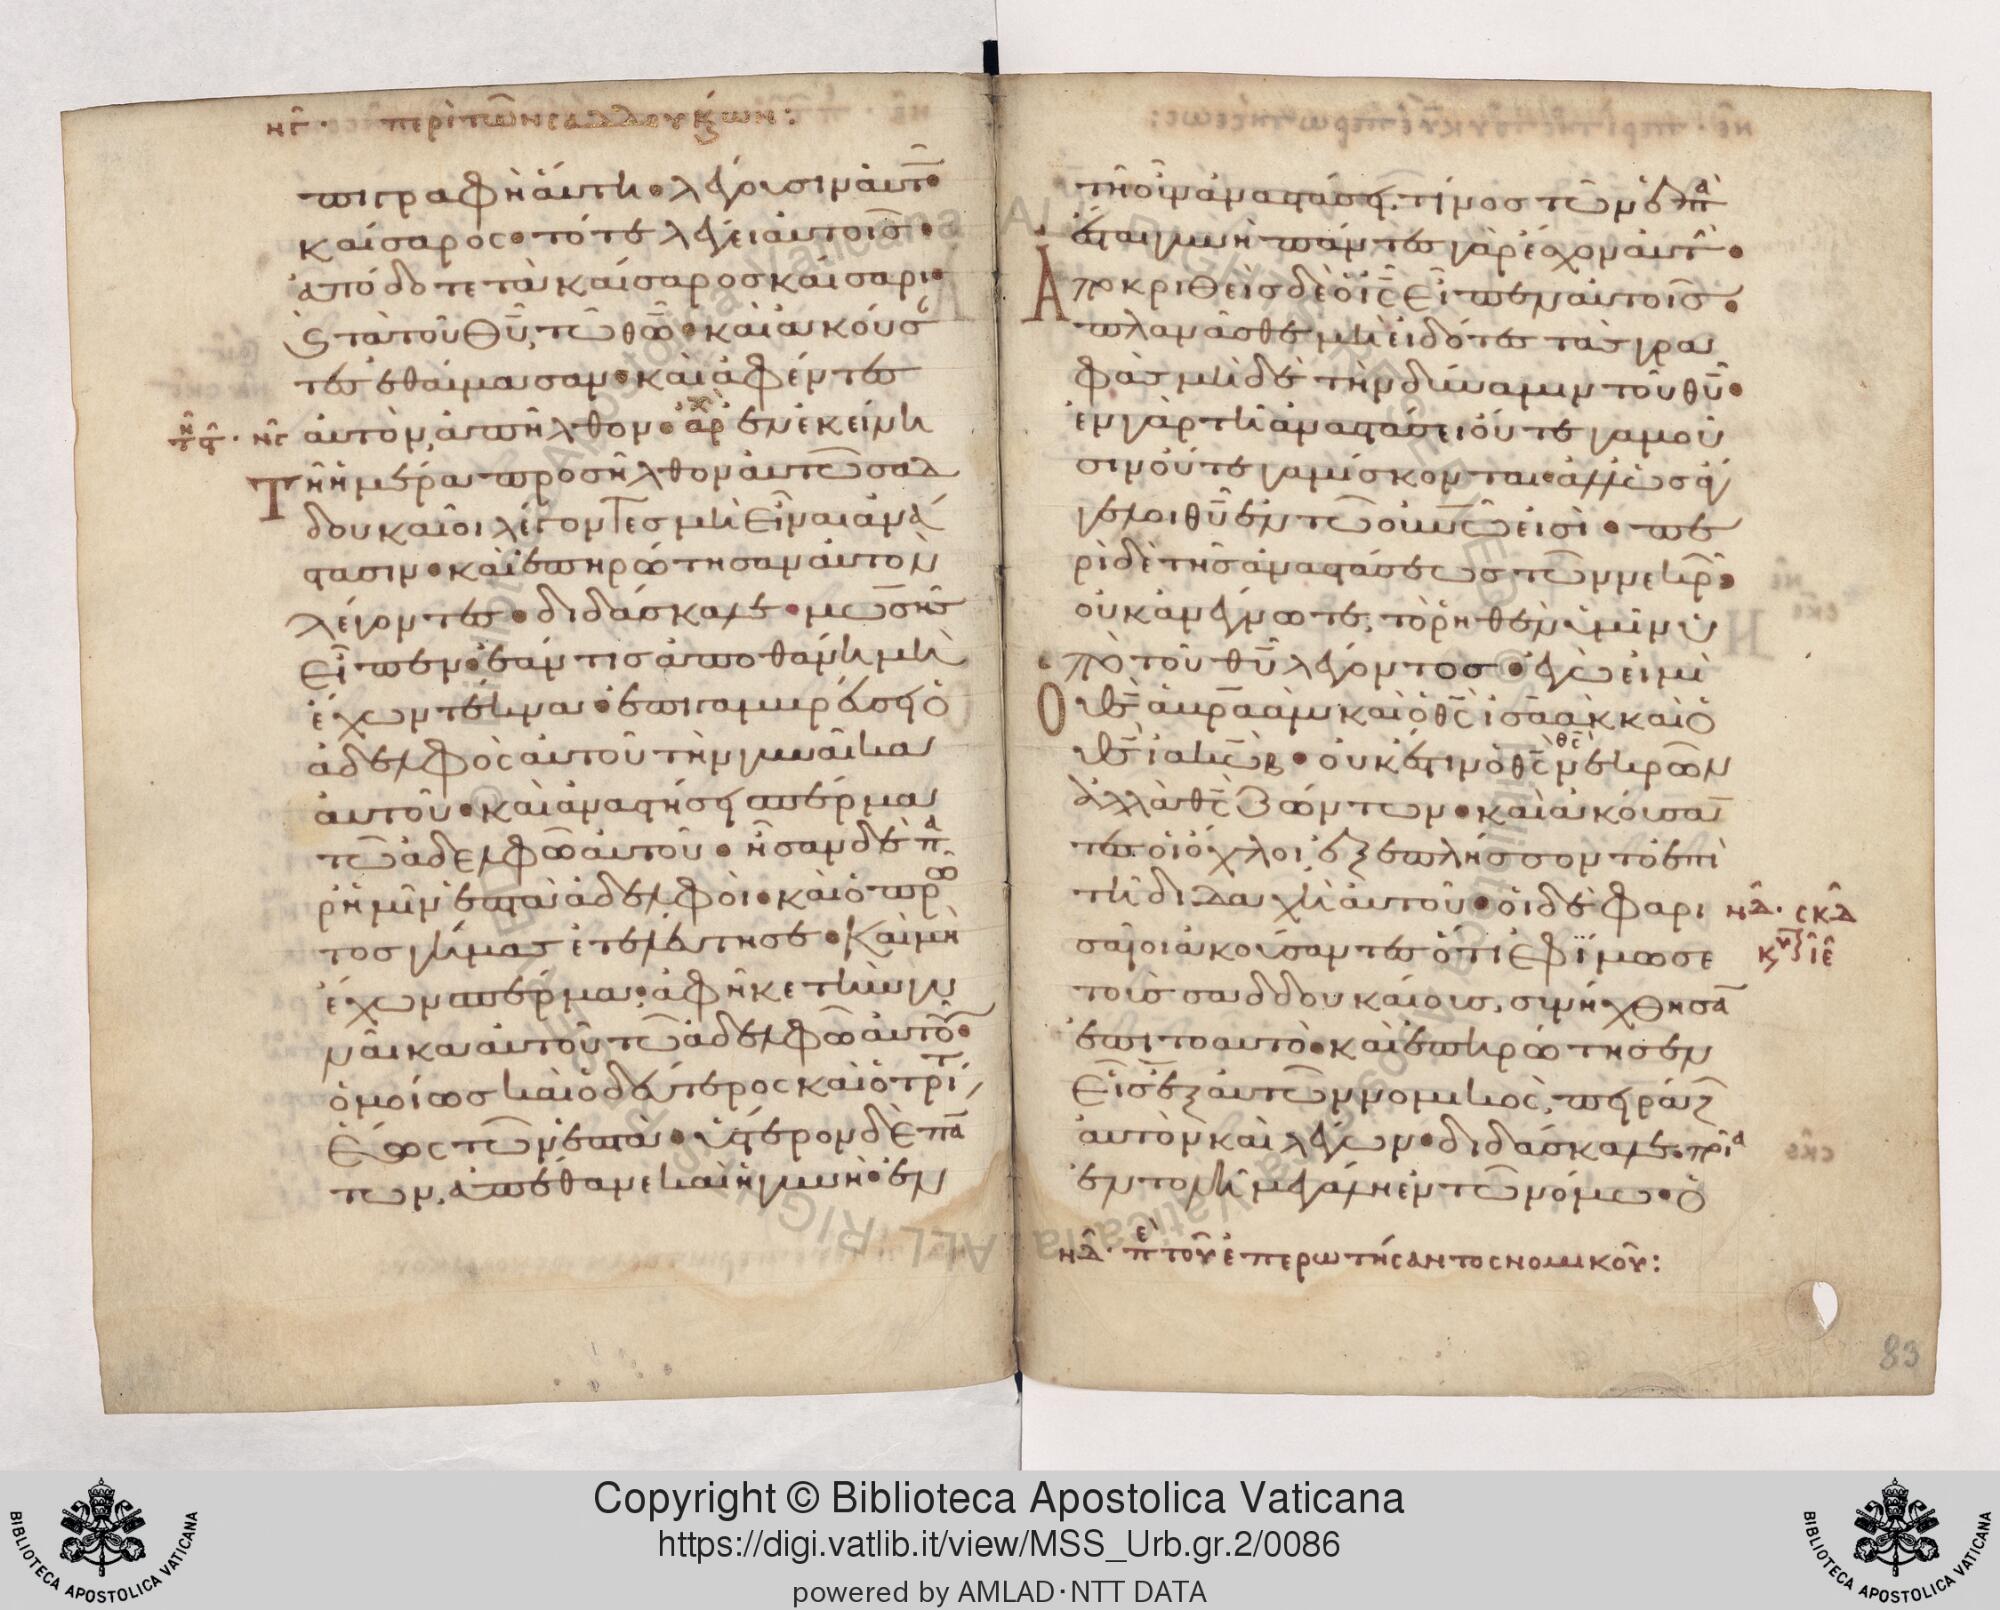 νς· περὶ τῶν σαδδουκαίων:
πιγραφὴ αὕτη· λέγουσιν αὐτῶ·
καίσαρος· τότε λέγει αὐτοῖς·
ἀπόδοτε τὰ καίσαρος καίσαρι·
ϗ τὰ τοῦ θῡ, τῶ θω̄· καὶ ἀκούσαν
τες ἐθαύμασαν· καὶ ἀφέντες
αὐτὸν, ἀπῆλθον· ἀρ ἐν ἐκείνη
Τῆ ἡμέρα προσῆλθον αὐτῶ σαδ
δουκαῖοι λέγοντες μὴ εἶναι ἀνά
στασιν· καὶ ἐπηρώτησαν αὐτὸν
λέγοντες· διδάσκαλε· μωσῆς
εἶπεν· ἐάν τις ἀποθάνη μὴ
ἔχων τέκνα· ἐπιγαμβρεύσει ὁ
ἀδελφὸς αὐτοῦ τὴν γυναῖκα
αὐτοῦ· καὶ ἀναστήσει σπέρμα
τῶ ἀδελφῶ αὐτοῦ· ἦσαν δὲ πα
ρ᾽ ἡμῖν ἑπτὰ ἀδελφοὶ· καὶ ὁ πρῶ
τος γήμας ἐτελεύτησε· καὶ μὴ
ἔχων σπέρμα· ἀφῆκε τὴν γυ
ναῖκα αὐτοῦ τῶ ἀδελφῶ αὐτοῦ·
ὁμοίως καὶ ὁ δεύτερος καὶ ὁ τρίτ
ἕως τῶν ἑπτὰ· ὕστερον δὲ πᾱ
των, ἀπέθανε καὶ ἡ γυνὴ· ἐν
τῆ οὖν ἀναστάσει, τίνος τῶν ἑπτὰ
ἔσται γυνὴ πάντες γὰρ ἔσχον αὐτὴ·
Ἀποκριθεὶς δὲ ὁ ις̄ εἶπεν αὐτοῖς·
πλανᾶσθε μὴ εἰδότες τὰς γρα
φὰς μὴ δὲ τὴν δύναμιν τοῦ θῡ·
ἐν γὰρ τῆ ἀναστάσει οὔτε γαμοῦ
σιν οὔτε γαμίσκονται· ἀλλ᾽ ὡς ἄγ
γελοι θῡ ἐν τῶ οὐνω̄ εἰσὶ· πε
ρὶ δὲ τῆς ἀναστάσεως τῶν νεκρῶ·
οὐκ ἀνέγνωτε, τὸ ῥηθὲν ὑμῖν ὑ
πὸ τοῦ θῡ λέγοντος· ἐγώ εἰμι
Ὁ θς̄ ἀβραὰμ καὶ ὁ θς̄ ἰσαὰκ καὶ ὁ
θς̄ ἰακὼβ· οὐκ ἔστιν ὁ θς̄ θς̄ νεκρῶν
ἀλλὰ θς̄ ζώντων· καὶ ἀκούσαν
τες οἱ ὄχλοι, ἐξεπλήσσοντο ἐπὶ
τῆ διδαχῆ αὐτοῦ· οἱ δὲ φαρι
σαῖοι ἀκούσαντες ὅτι ἐφίμωσε
τοὺς σαδδουκαίους, συνήχθησᾱ
ἐπιτοαυτὸ· καὶ ἐπηρώτησεν
εἷς ἐξ αὐτῶν νομικὸς, πειράζ
αὐτὸν καὶ λέγων· διδάσκαλε· ποία
ἐντολὴ μεγάλη ἐν τῶ νόμω· ὁ
νδ· σκδ
κυ ιε
νδ· πε τοῦ ἐπερωτήσαντος νομικοῦ:
83
Copyright © Biblioteca Apostolica Vaticana
https://digi.vatlib.it/view/MSS_Urb.gr.2/0086
powered by AMLAD·NTT DATA
BIBLIOTECA APOSTOLICA VATICANA
BIBLIOTECA APOSTOLICA VATICANA